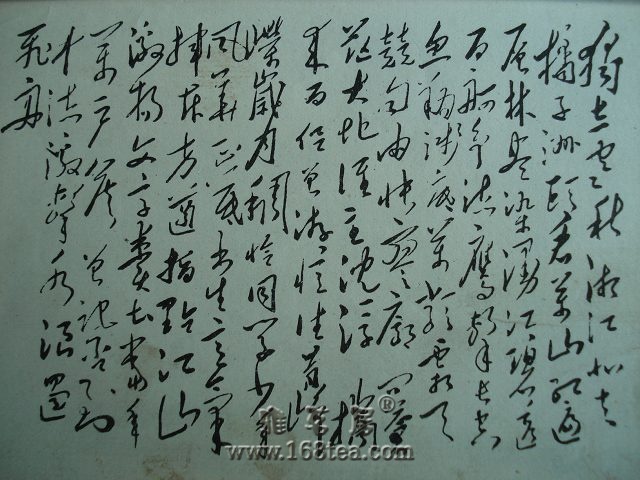 独立寒秋湘江北去
橘子洲头看万山红遍
层林尽染漫江碧透
百舸争流鹰击长空
鱼翔浅底万类霜天
竞自由怅寥廓 问苍
茫大地谁主沉浮 携
来百侣曾游忆往昔峥
嵘岁月稠恰同学少年
风华正茂书生意气
挥斥方遒指点江山
激扬文字粪土当年
万户侯曾记否到
中流击水浪遏
飞舟
www.168tea.com